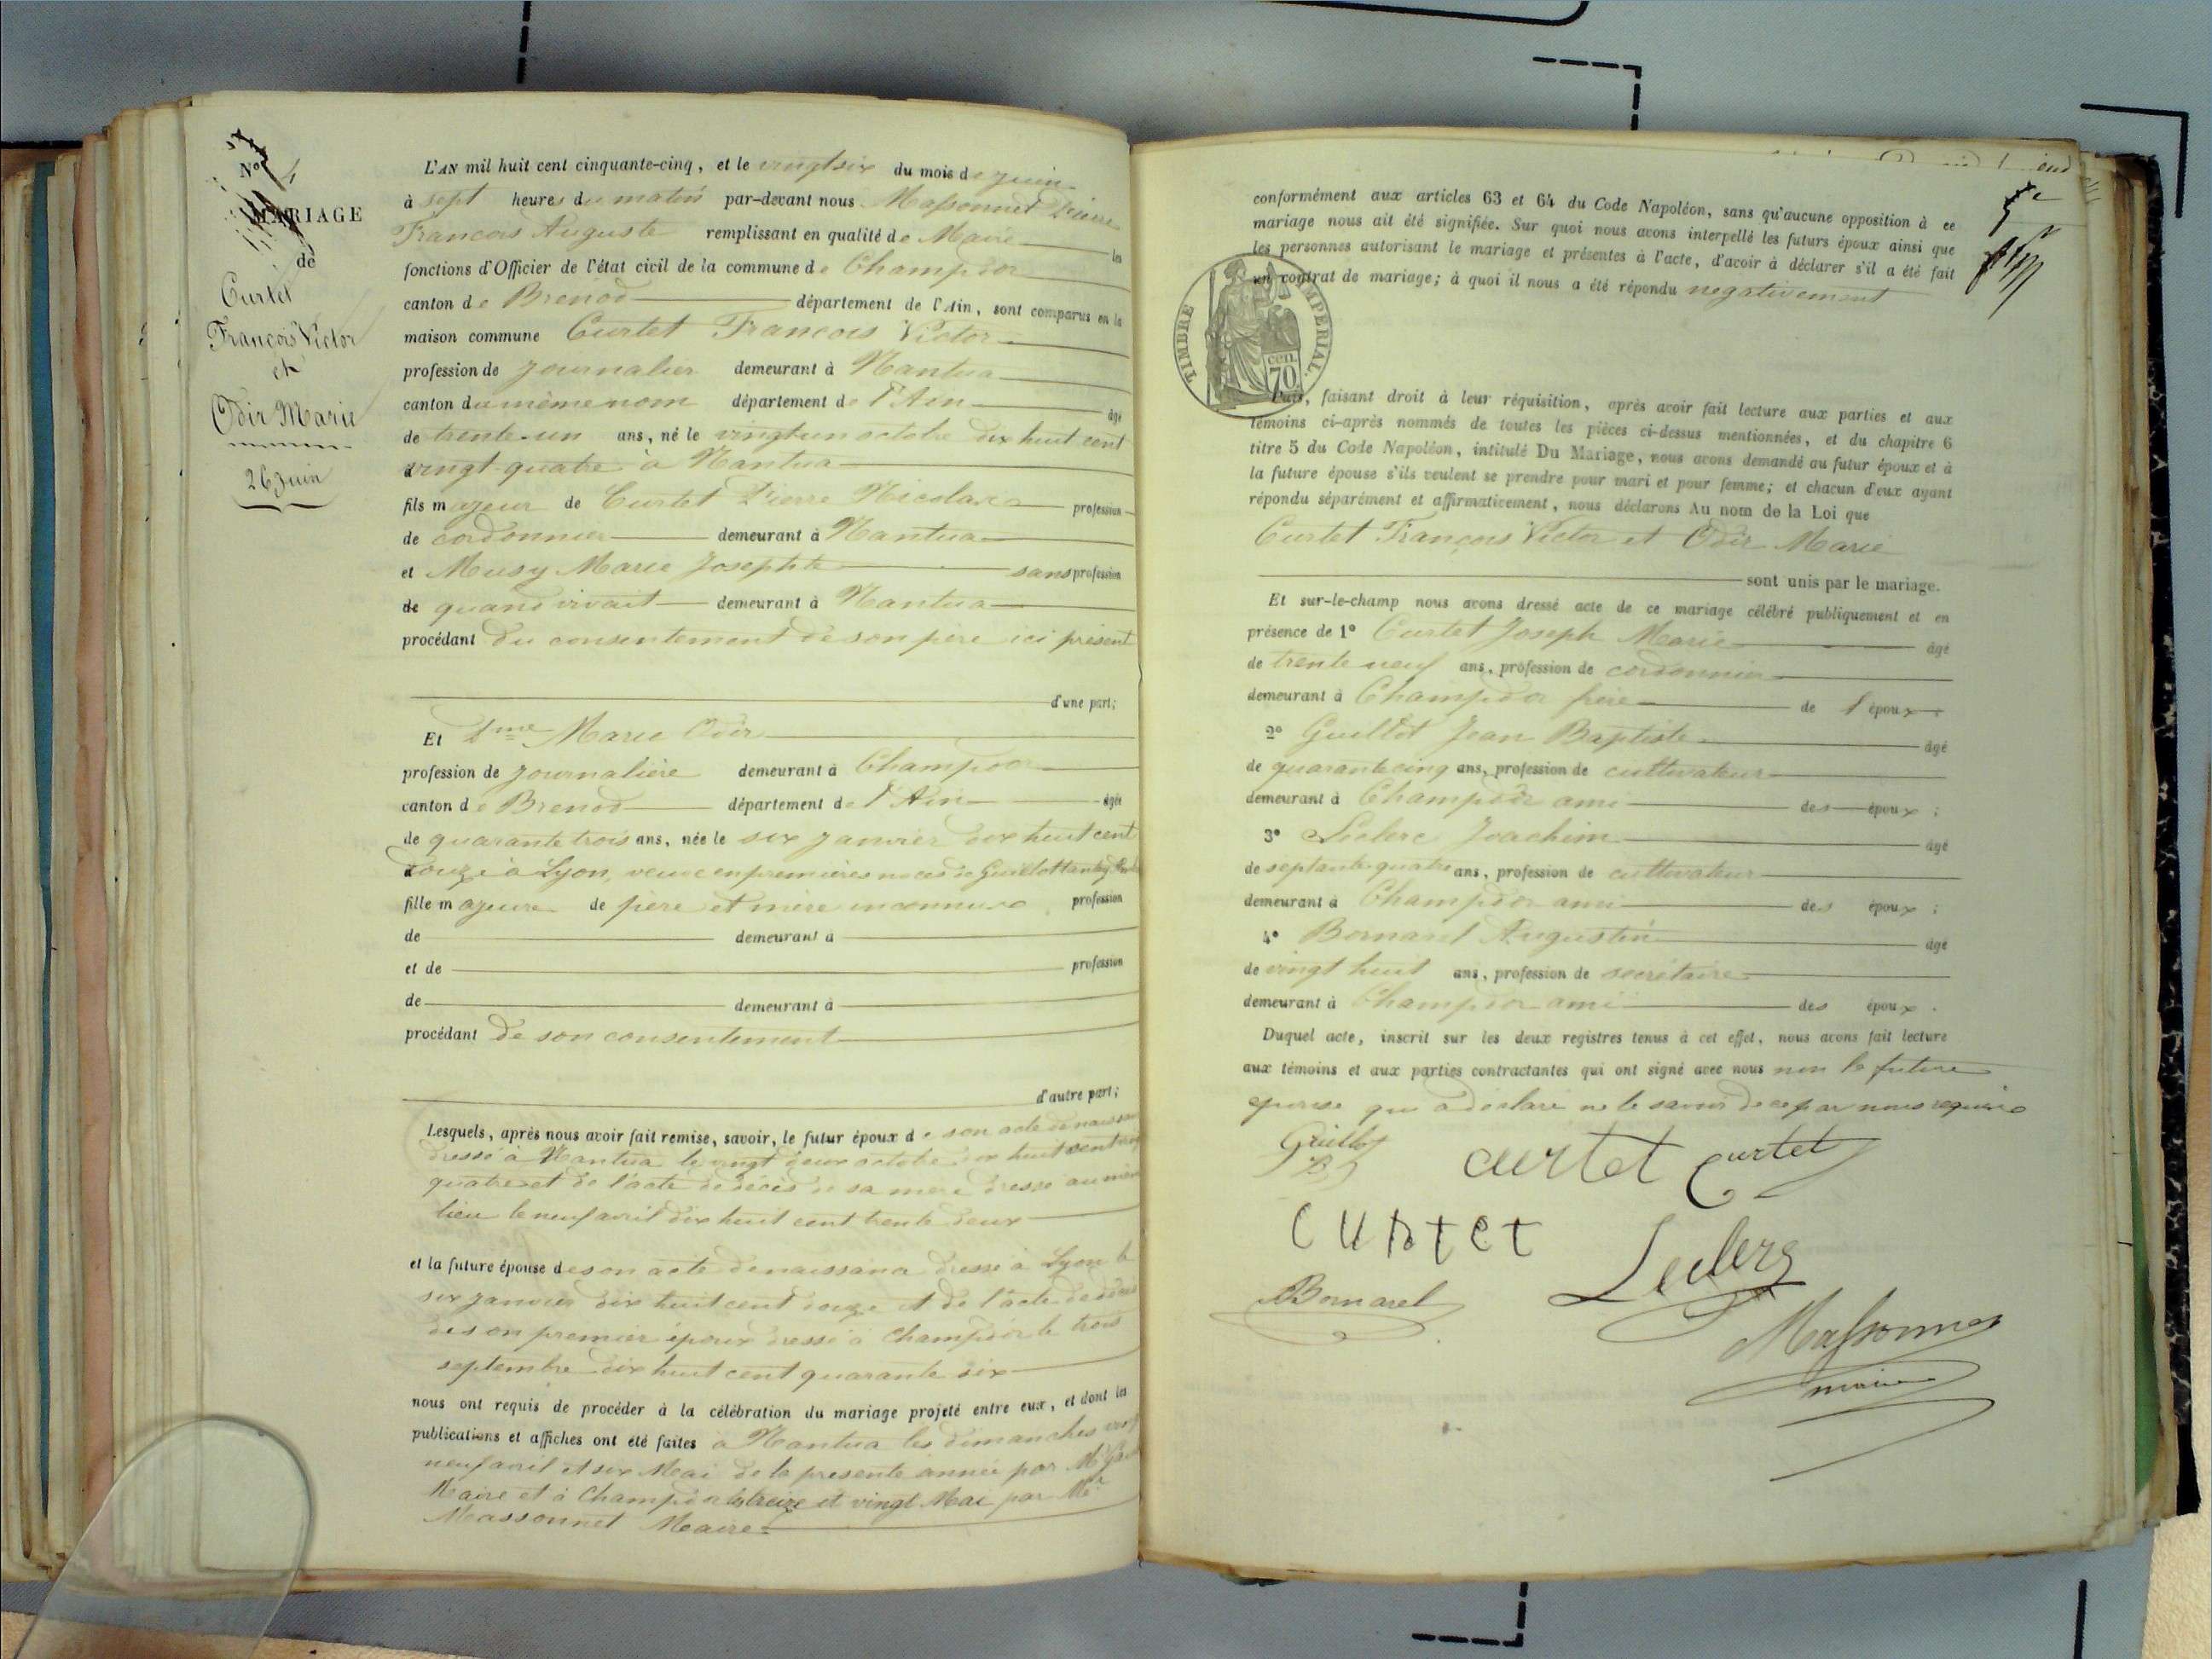 Nº 4
MARIAGE
de
Curtet
François Victor
et
Odir Marie
26 Juin
L'AN mil huit cent cinquante-cinq, et le vingt six du mois de juin
à sept heures du matin par-devant nous Massonnet Pierre
François Auguste remplissant en qualité de Maire les
fonctions d'Officier de l'état civil de la commune de Champdor
canton de Brenod département de l'Ain, sont comparus en la
maison commune Curtet François Victor
profession de journalier demeurant à Nantua
canton du même nom département de l'Ain âgé
de trente-un ans, né le vingt un octobre dix huit cent
vingt-quatre à Nantua
fils majeur de Curtet Pierre Nicolas profession
de cordonnier demeurant à Nantua
et Musy Marie Josephte sans profession
de quand vivait demeurant à Nantua
procédant du consentement de son père ici présent
d'une part;
Et Dme Marie Odir
profession de journalière demeurant à Champdor
canton de Brenod département de l'Ain âgée
de quarante trois ans, née le six janvier dix huit cent
douze à Lyon, veuve en premières noces de Guillot
fille majeure de père et mère inconnus profession
de demeurant à
et de profession
de demeurant à
procédant de son consentement
d'autre part;
Lesquels, après nous avoir fait remise, savoir, le futur époux de son acte de naissance
dressé à Nantua le vingt deux octobre dix huit cent vingt
quatre et de l'acte de décès de sa mère dressé au même
lieu le neuf avril dix huit cent trente deux
et la future épouse de son acte de naissance dressé à Lyon le
six janvier dix huit cent douze et de l'acte de décès
de son premier époux dressé à Champdor le trois
septembre dix huit cent quarante six
nous ont requis de procéder à la célébration du mariage projeté entre eux, et dont les
publications et affiches ont été faites à Nantua les dimanches vingt
neuf avril et six Mai de la présente année par Mr
Maire et à Champdor le treize et vingt Mai par Mr
Massonnet Maire
conformément aux articles 63 et 64 du Code Napoléon, sans qu'aucune opposition à ce
mariage nous ait été signifiée. Sur quoi nous avons interpellé les futurs époux ainsi que
les personnes autorisant le mariage et présentes à l'acte, d'avoir à déclarer s'il a été fait
un contrat de mariage; à quoi il nous a été répondu negativement
TIMBRE IMPÉRIAL.
cen.
70
Puis, faisant droit à leur réquisition, après avoir fait lecture aux parties et aux
témoins ci-après nommés de toutes les pièces ci-dessus mentionnées, et du chapitre 6
titre 5 du Code Napoléon, intitulé Du Mariage, nous avons demandé au futur époux et à
la future épouse s'ils veulent se prendre pour mari et pour femme; et chacun d'eux ayant
répondu séparément et affirmativement, nous déclarons Au nom de la Loi que
Curtet François Victor et Odir Marie
sont unis par le mariage.
Et sur-le-champ nous avons dressé acte de ce mariage célébré publiquement et en
présence de 1º Curtet Joseph Marie âgé
de trente neuf ans, profession de cordonnier
demeurant à Champdor frère de l'époux
2º Guillot Jean Baptiste âgé
de quarante cinq ans, profession de cultivateur
demeurant à Champdor ami des époux;
3º Leclerc Joachim âgé
de septante-quatre ans, profession de cultivateur
demeurant à Champdor ami des époux;
4º Bornarel Augustin âgé
de vingt huit ans, profession de secrétaire
demeurant à Champdor ami des époux.
Duquel acte, inscrit sur les deux registres tenus à cet effet, nous avons fait lecture
aux témoins et aux parties contractantes qui ont signé avec nous non la future
épouse qui a déclaré ne le savoir de ce par nous requise
Guillot
JB
curtet Curtet
CURtet
Leclerc
Bornarel
Massonnet
maire